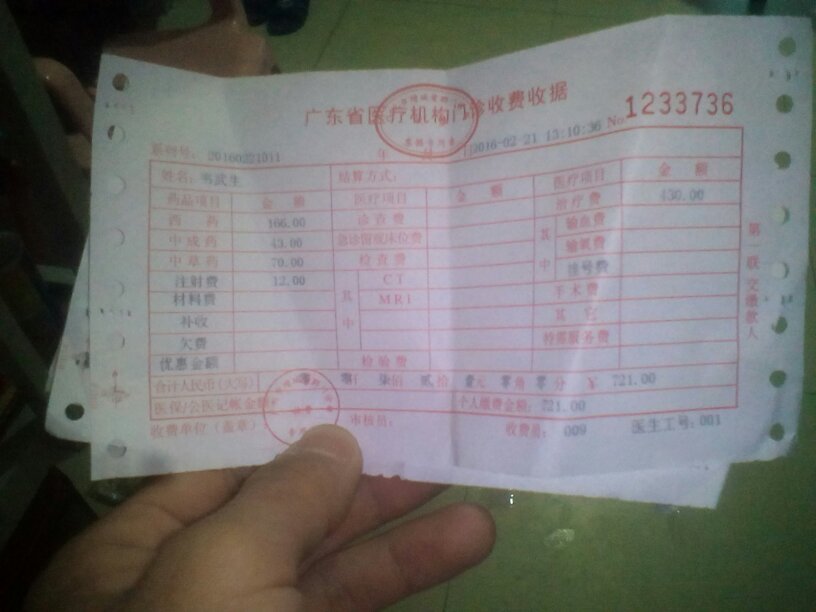 广东省医疗机构门诊收费收据
No 1233736
2016-02-21 13:10:36
年 月 日
系列号: 20160221011
姓名: 韦武生 结算方式:
药品项目 金 额 医疗项目 金 额 医疗项目 金 额
西 药 166.00 诊查费 治疗费 430.00
中成药 43.00 急诊留观床位费 其中 输血费
中草药 70.00 检查费 输氧费
注射费 12.00 其中 CT 挂号费
材料费 MRI 手术费
补收 其它
欠费 特需服务费
优惠金额 检验费
合计人民币(大写) 零 零仟 柒佰 贰拾 壹元 零角 零分 ¥ 721.00
医保/公医记帐金额 个人缴费金额: 721.00
收费单位(盖章) 审核员: 收费员: 009 医生工号: 001
第一联 交缴款人